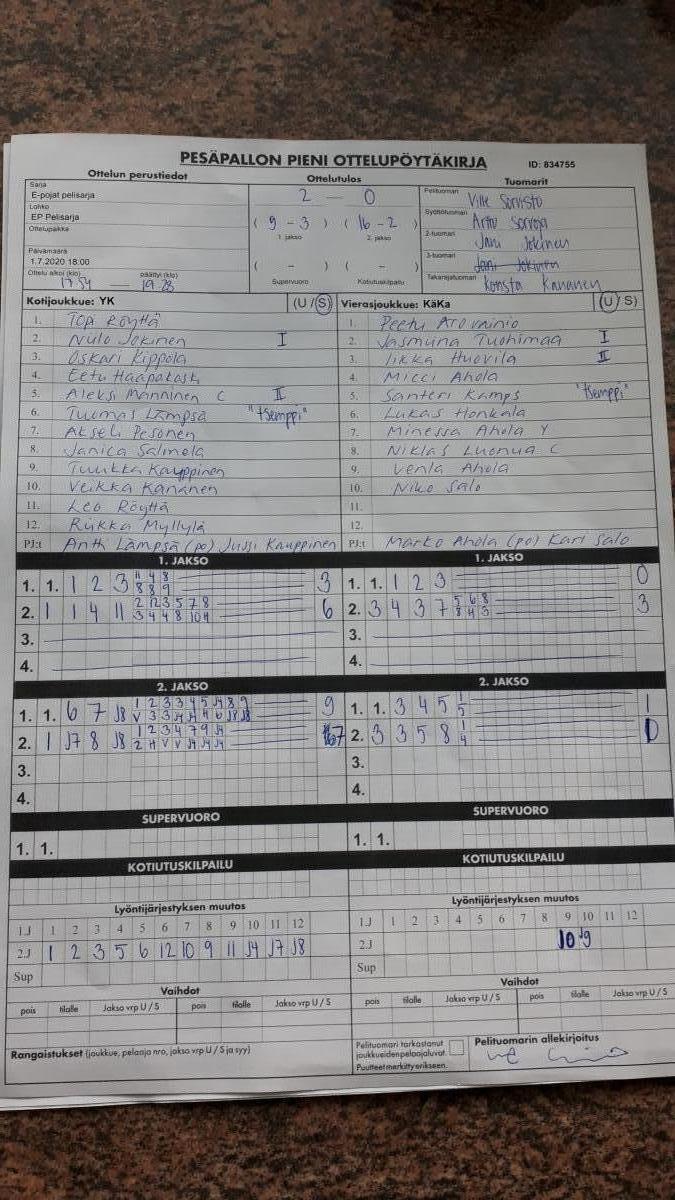 PESÄPALLON PIENI OTTELUPÖYTÄKIRJA
ID: 834755
Ottelun perustiedot
Sarja
E-pojat pelisarja
Lohko
EP Pelisarja
Ottelupaikka
Päivämäärä
1.7.2020 18:00
Ottelu alkoi (klo) päättyi (klo)
17.54 — 19.28
Ottelutulos
2 — 0
( 9 - 3 ) ( 16 - 2 )
1. jakso 2. jakso
( - ) ( - )
Supervuoro Kotiutuskilpailu
Tuomarit
Pelituomari Ville Sorvisto
Syöttötuomari Arto
2-tuomari Jani Jokinen
3-tuomari Jani Jokinen
Takarajatuomari Konsta Kananen
Kotijoukkue: YK (U / S)
1. Topi Röyttä
2. Nulo Jokinen I
3. Oskari Kippola
4. Eetu Haapakoski
5. Aleksi Manninen C II
6. Tuomas Lämpsä "tsemppi"
7. Akseli Pesonen
8. Janica Salmela
9. Tuukka Kauppinen
10. Veikka Kananen
11. Leo Röyttä
12. Riikka Myllylä
PJ:t Antti Lämpsä (po) Jussi Kauppinen
Vierasjoukkue: KäKa (U / S)
1. Peetu
2. Jasmiina Tuohimaa I
3. Iikka Huovila II
4. Micci Ahola
5. Santeri Kamps "tsemppi"
6. Lukas Honkala
7. Minessa Ahola Y
8. Niklas Luonua C
9. Venla Ahola
10. Niko Salo
11.
12.
PJ:t Marko Ahola (po) Kari Salo
1. JAKSO
1. 1. 1 2 3 3
2. 1 1 4 11 2 12 3 5 7 8 6
3 4 4 8 10 4
3.
4.
1. JAKSO
1. 1. 1 2 3 0
2. 3 4 3 7 5 6 8 3
8 4 3
3.
4.
2. JAKSO
1. 1. 6 7 J8 9
2. 1 J7 8 J8 7
3.
4.
2. JAKSO
1. 1. 3 4 5 1 1
5
2. 3 3 5 8 1 1
4
3.
4.
SUPERVUORO
1. 1.
SUPERVUORO
1. 1.
KOTIUTUSKILPAILU
KOTIUTUSKILPAILU
Lyöntijärjestyksen muutos
1.J 1 2 3 4 5 6 7 8 9 10 11 12
2.J 1 2 3 5 6 12 10 9 11 J4 J7 J8
Sup
Lyöntijärjestyksen muutos
1.J 1 2 3 4 5 6 7 8 9 10 11 12
2.J 10 J9
Sup
Vaihdot
pois tilalle Jakso vrp U / S pois tilalle Jakso vrp U / S
Vaihdot
pois tilalle Jakso vrp U / S pois tilalle Jakso vrp U / S
Rangaistukset (joukkue, pelaaja nro, jakso vrp U / S ja syy)
Pelituomari tarkastanut
joukkueiden pelaajaluvat.
Puutteet merkitty erikseen.
Pelituomarin allekirjoitus